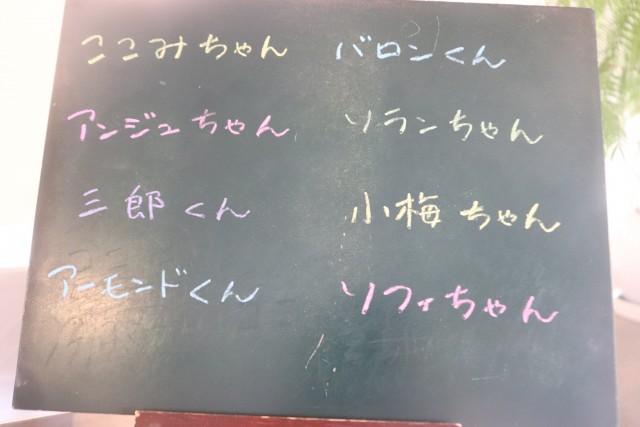 ここみちゃん
バロンくん
アンジュちゃん
ソランちゃん
三郎くん
小梅ちゃん
アーモンドくん
ソフィちゃん